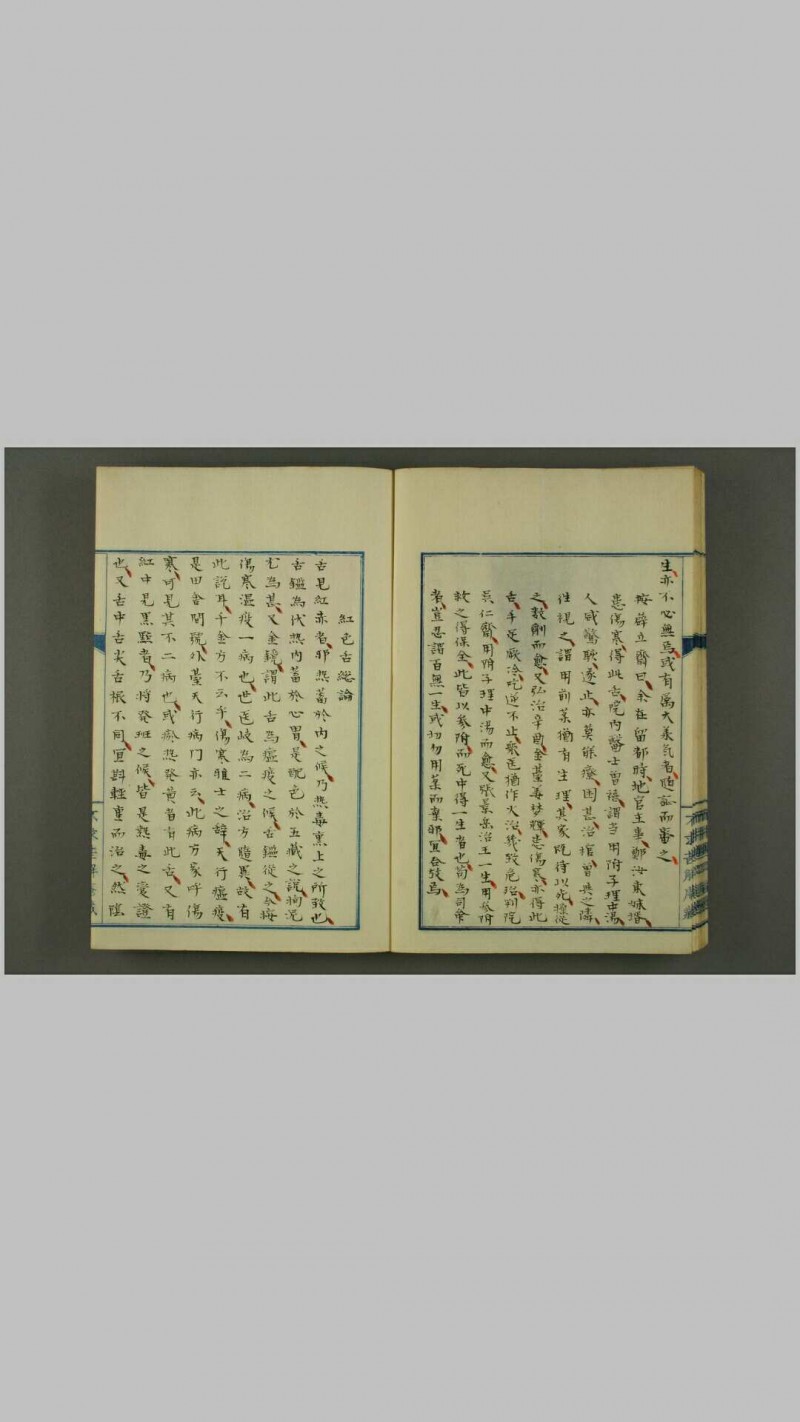 生亦不必無焉或有屬大義氣者隨証而審之
按薛立齋曰余在留都時地官主事鄭汝東妹壻
患傷寒得此舌院內醫士曾禧謂當用附子理中湯
人咸驚駭遂止亦莫能療困甚治棺曾與之隣
往視之謂用前藥猶有生理其家既待以死拚從
之數劑而愈又弘治辛酉金臺姜夢輝患傷寒亦得此
舌手足厥冷吃逆不止衆医猶作火治幾致危殆判院
吳仁齋用附子理中湯而愈又張景岳治王一生用參附
救之得保全此皆以參附而死中得一生者也苟為司命
者豈忍謂百無一生或切勿用藥而棄邪宜吞發焉
紅色舌總論
舌見紅赤者邪熱蓄於內之候乃熱毒熏上之所致也
舌鑑為伏熱內蓄於心胃是配色於五藏之說拘泥
尤為甚又金鏡謂此舌為瘟疫之候舌鑑從之今按
傷寒溫疫一病也世医岐為二病治方隨異故有
此說耳千金方不云乎傷寒雅士之辞天行瘟疫
是田舍間號外臺天行病門亦云此病方家呼傷
寒可見其不二病也或瘀熱發黃者有此舌又有
紅中見黑點者乃將發班之候皆是熱毒之變證
也又舌中舌尖舌根不同宜斟輕重而治之然陰